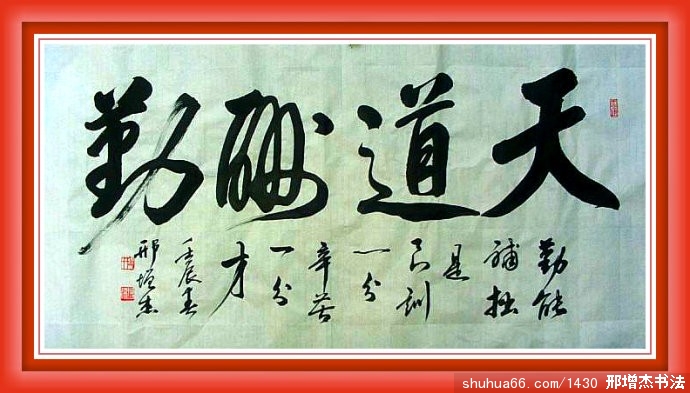 天道酬勤
勤能
补拙
是
良训
一分
辛苦
一分
才
壬辰春
邢增杰
shuhua66.com/1430 邢增杰书法